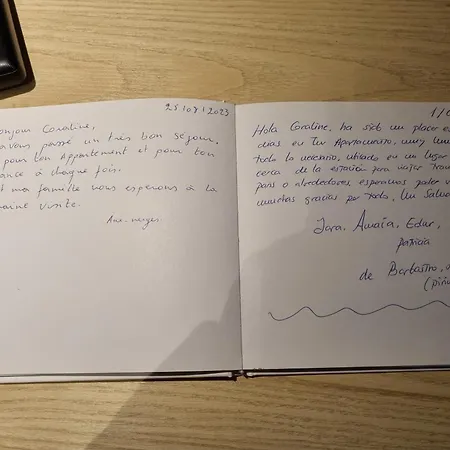 25/07/2023
onjour Coraline,
avons passé un très bon séjour.
pour ton Appartement et pour ton
ance à chaque fois.
t ma famille nous espérons à la
aine visite.
1/0
Hola Coraline, ha sido un placer e
dias en Tu Apartamento, muy
todo lo necesario, ubicado en un lugar
cerca de la estación para viajar
paris o alrededores esperamos poder v
muchas gracias por todo, Un Salu
Jara, Amaia, Edur,
patricia
de Barbastro,